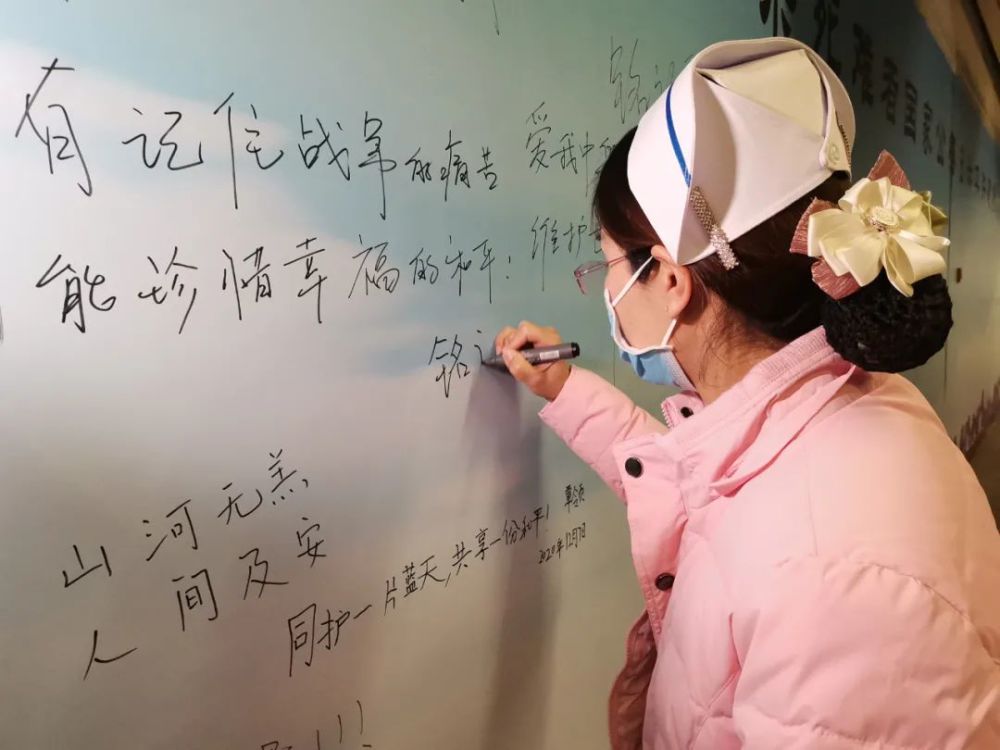 铭记
有记住战争的痛苦 爱我中
能珍惜幸福的和平! 维护
铭
山河无恙
人间及安
同护一片蓝天,共享一份和平! 覃领
2020年12月7日
难者国家公